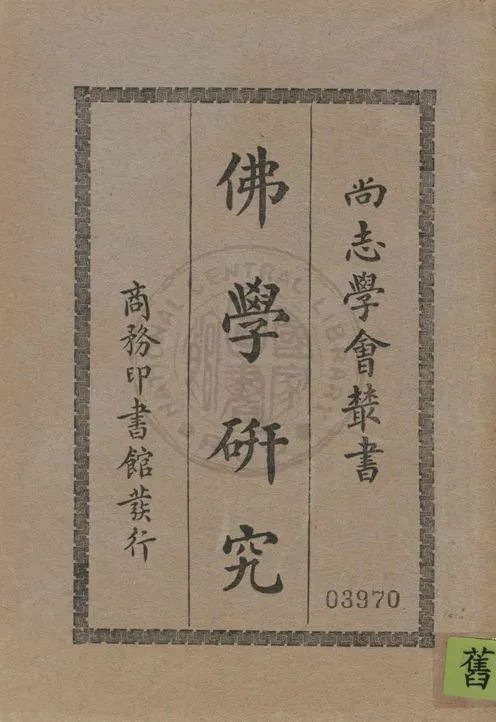 尚志學會叢書
佛學研究
商務印書館發行
03970
舊
NATIONAL CENTRAL LIBRARY